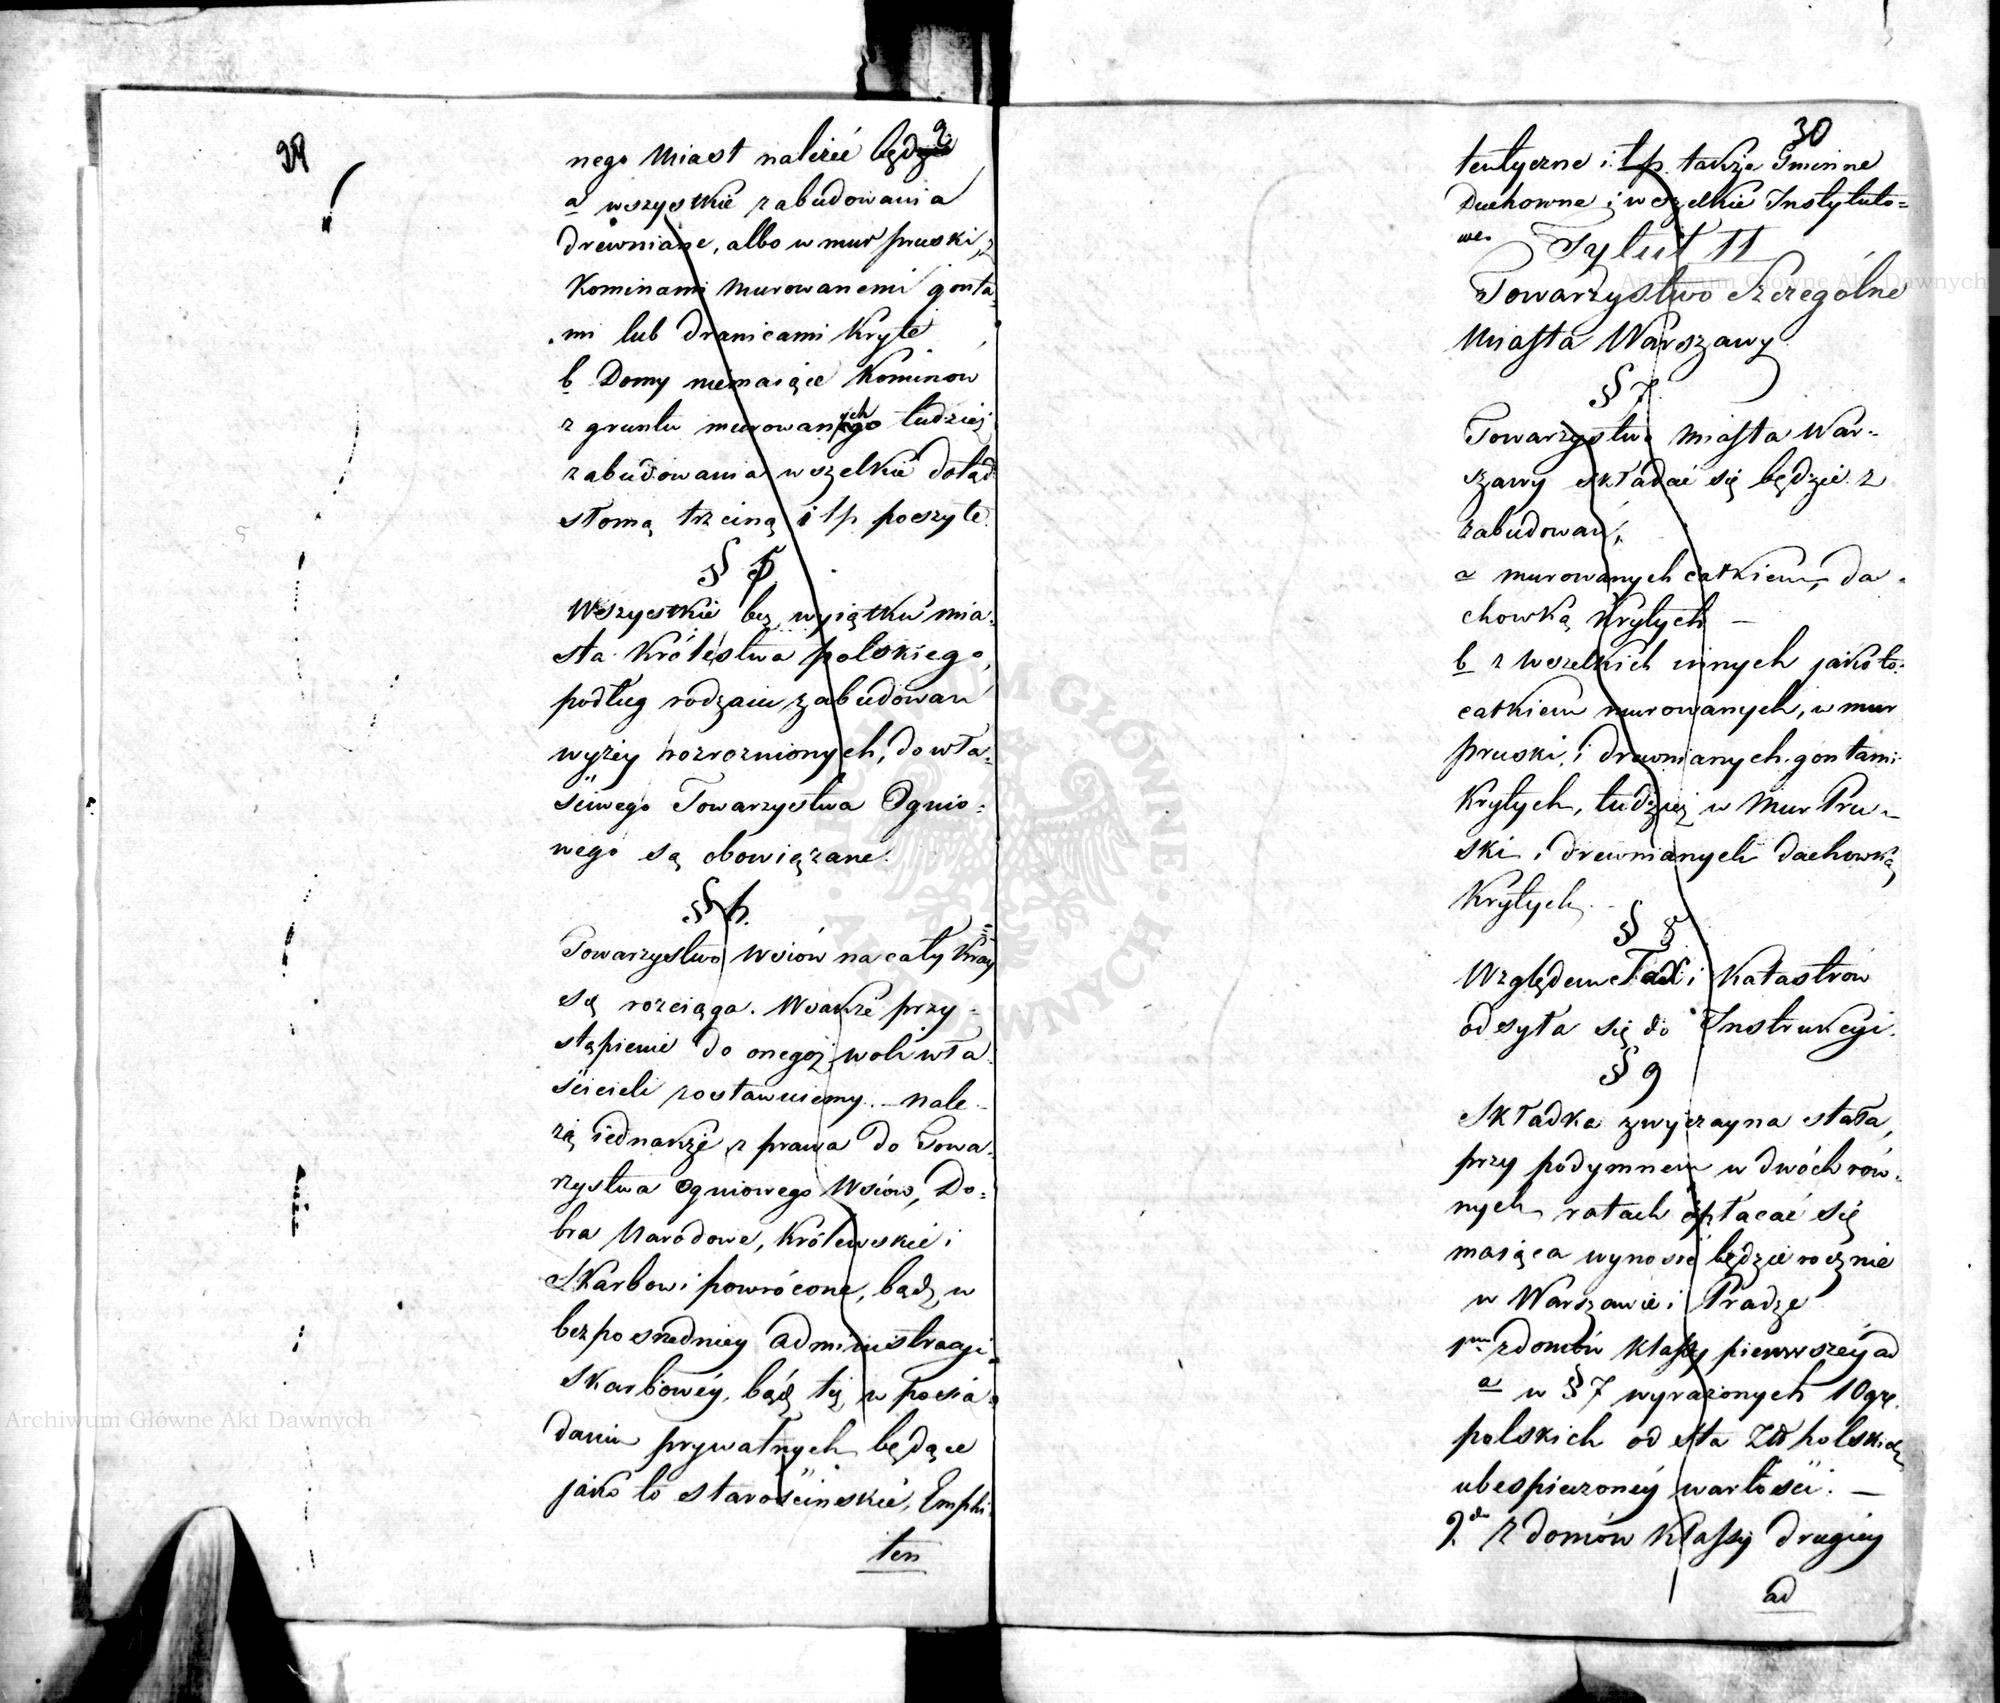 nego Miast należéć będą
a wszystkie zabudowania
drewniane, albo w mur pruski, z
Kominami murowanemi gonta-
mi lub dranicami Kryte
b Domy niemaiące Kominow
z gruntu murowanych tudzież
zabudowania wszelkie dotąd
słomą trzciną i t p poszyte.
§ 5
Wszystkie bez wyiątku mia-
sta Królestwa polskiego,
podług rodzaiu zabudowan
wyżey rozroznionych, do wła-
ściwego Towarzystwa Ognio-
wego są obowiązane.
§ 6.
Towarzystwo Wsiów na cały Kray
się rozciąga. Wsakże przy-
stąpienie do onegoż woli wła-
ścicieli zostawuiemy. – Nale-
żą iednakże z prawa do Towa-
rzystwa Ogniowego Wsiów, Do-
bra Narodowe, Królewskie i
Skarbowi powrócone, bądź w
bezposredniey administracyi
Skarbowéy, bądź téż w posia-
daniu prywatnych będące
jako to starościnskie, Emphi-
ten
30
teutyczne i t.p. także Gminne
Duchowne i wszelkie Instytuto-
we.
Tytuł II
Towarzystwo Szczególne
Miasta Warszawy
§ 7.
Towarzystwo Miasta War-
szawy składać się będzie z
zabudowań,
a murowanych całkiem, da-
chowką Krytych –
b z wszelkich innych jako to:
całkiem murowanych, w mur
pruski, i drewnianych gontami
Krytych, tudzież w Mur Pru-
ski i drewnianych dachowką
Krytych. –
§ 8
Względem Tax i Katastrów
odsyła się do Instrukcyi.
§ 9
Składka zwyczayna stała,
przy podymnem w dwóch rów-
nych ratach opłacać się
maiąca wynosić będzie rocznie
w Warszawie i Pradze
1mo z domów Klassy pierwszéy ad
a w § 7 wyrażonych 10 gr.
polskich od sta Zł polskich
ubespieczonéy wartości. –
2do z domów Klassy drugiey
ad
Archiwum Główne Akt Dawnych
Archiwum Główne Akt Dawnych
ARCHIWUM GŁÓWNE AKT DAWNYCH